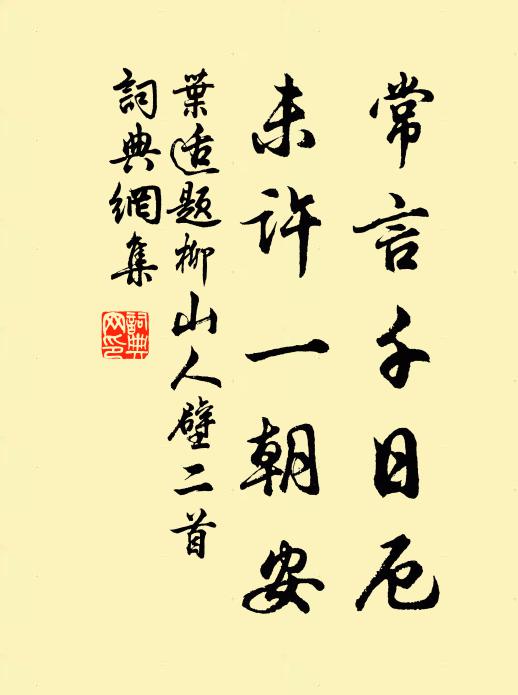 常言千日厄
未许一朝安
葉适题柳山人壁二首
詞典網集
詞典网印